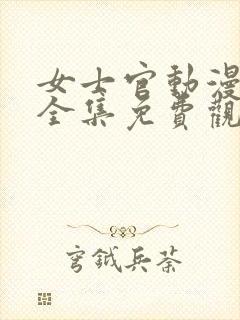 女士官動漫
全集免費觀
穹鉞兵荼